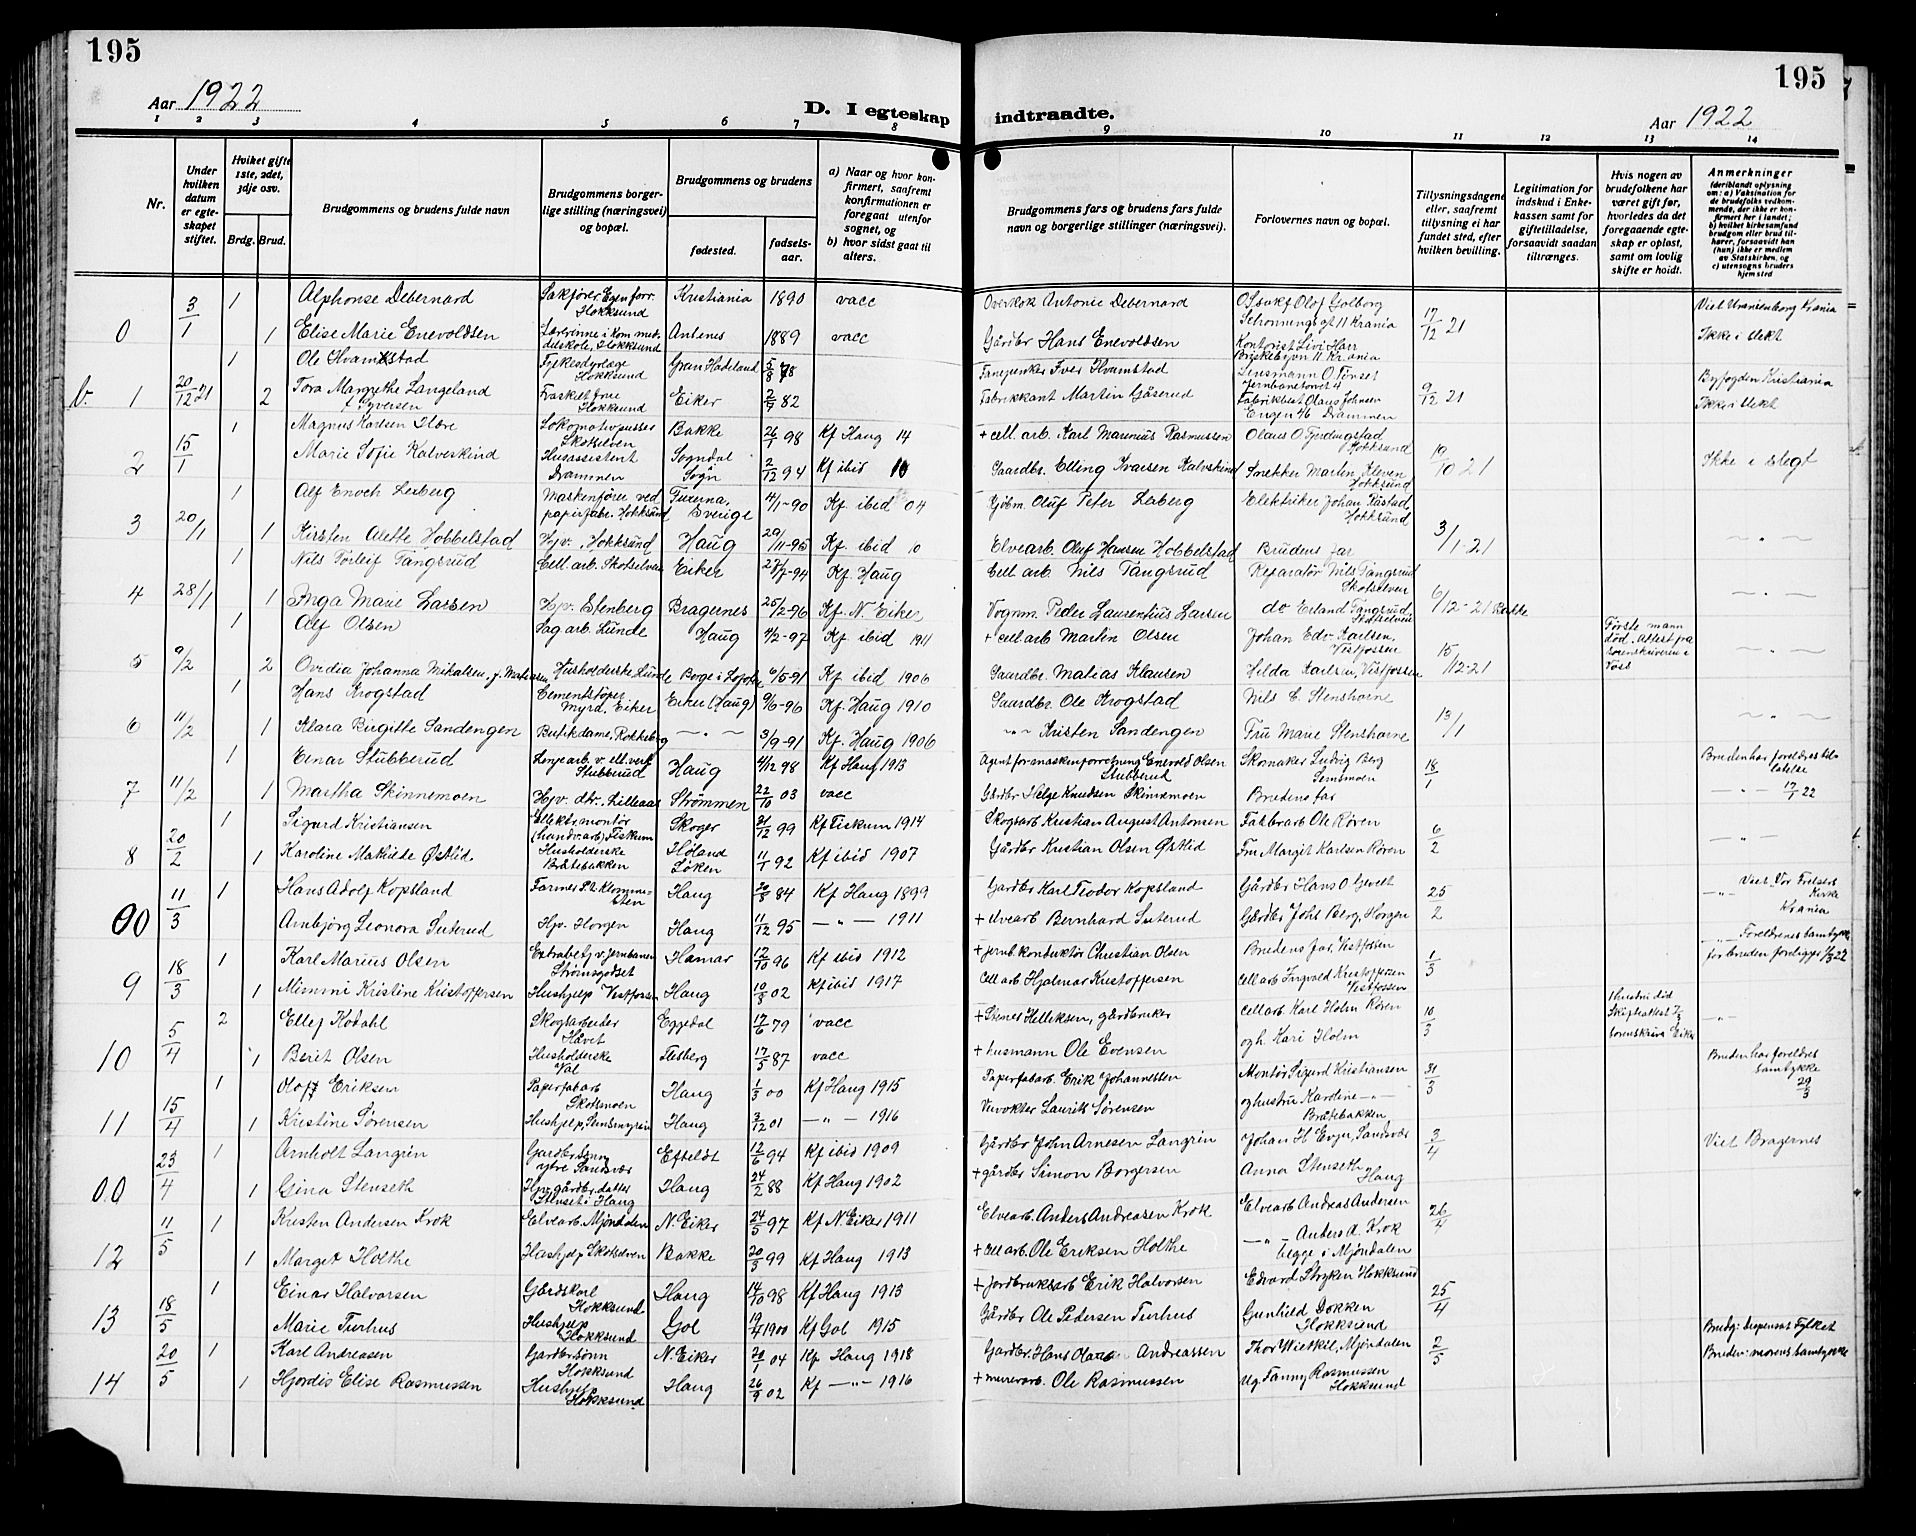 195
195
Aar 1922
D. I egteskap indtraadte.
Aar 1922
1 2 3 4 5 6 7 8 9 10 11 12 13 14
Nr.
Under hvilken datum er egteskapet stiftet.
Hvilket gifte 1ste, 2det, 3dje osv.
Brdg. Brud.
Brudgommens og brudens fulde navn
Brudgommens borgerlige stilling (næringsvei) og bopæl.
Brudgommens og brudens
fødested.
fødselsaar.
a) Naar og hvor konfirmert, saafremt konfirmationen er foregaat utenfor sognet, og
b) hvor sidst gaat til alters.
Brudgommens fars og brudens fars fulde navn og borgerlige stillinger (næringsvei).
Forlovernes navn og bopæl.
Tillysningsdagene eller, saafremt tillysning ei har fundet sted, efter hvilken bevilling.
Legitimation for indskud i Enkekassen samt for giftetilladelse, forsaavidt saadan tiltrænges.
Hvis nogen av brudefolkene har været gift før, hvorledes da det foregaaende egteskap er opløst, samt om lovlig skifte er holdt.
Anmerkninger
(deriblandt oplysning om: a) Vaksination for de brudefolks vedkommende, der ikke er konfirmert her i landet; b) hvilket kirkesamfund brudgom eller brud tilhører, forsaavidt han (hun) ikke er medlem av Statskirken, og c) utensogns bruders hjemsted
3/1 1 Alphonse Debernard Sakfører Egenforr. Hokksund Kristiania 1890 vacc Overkok Antonie Debernard O.r.sakf Olof Golborg Schønningsgt 11 Krania 17/12 21 Viet Uranienborg Krania
0 1 Elise Marie Enevoldsen Lærerinne i kom. middelskole, Hokksund 1889 vacc Gårdbr Hans Enevoldsen Kontorist Livi Harr Briskebyvn 11 Kr.ania Ikke i slekt
1 Ole Hvamstad Fylkesdyrlæge Hokksund Gran Hadeland 5/8 78 Iver Hvamstad Lensmann O Tinset Jernbanetorvet 4 Byfogden Kristiania
b. 1 20/12 21 2 Tora Margrethe Langeland f Syversen Fraskilt frue Hokksund Eiker 2/7 82 Fabrikkant Martin Gåserud Fabrikbest Olaus Johnsen Engen 46 Drammen 9/12 21 Ikke i slekt
1 Magnus Karlsen Flære Lokomotivpusser Skotselven Bakke 26/1 98 Kf Haug 14 + cell. arb. Karl Marenius Rasmussen Olaus O. Fjerdingstad Hokksund
2 15/1 Marie Sofie Kalveskind Husassistent Drammen Sogndal Sogn 2/12 94 Kf ibid 10 Gaardbr. Elling Ivarsen Kalvskind Snekker Martin Kleven Hokksund 19/10 21 Ikke i slegt
1 Alf Enoch Lerberg Maskinfører ved papirfabr. Hokksund Sverige 4/1-90 Kf. ibid 04 Gjbm. Oluf Peter Lerberg Elektriker Johan Råstad Hokksund
3 20/1 1 Kirsten Alette Hobbelstad Hjv. Hokksund Haug 29/11-95 Kf. ibid 10 Elvearb. Oluf Hansen Hobbelstad Brudens far 3/1-21 — „ —
1 Nils Torleif Tangsrud Cell. arb. Skotselven Eiker 27/7-94 Kf. Haug Cell arb. Nils Tangsrud Reparatør Nils Tangsrud Skotselven
4 28/1 1 Inga Marie Larsen Hjv. Stenberg Bragernes 25/2-96 Kf. N. Eiker Vognm. Peder Laurentius Larsen do Erland Tangsrud Skotselven 6/12-21 Bakke — „ —
1 Alf Olsen Sag arb. Lunde Haug 4/2-97 Kf. ibid 1911 + cell arb Martin Olsen Johan Edv. Karlsen, Vestfossen Første mann død. Attest fra sorenskriveren i Voss
5 9/2 2 Ovidia Johanna Mikalsen, f. Matiassen Husholderske Lunde Borge i Lofoten 6/5-91 Kf. ibid 1906 Gaardbr. Matias Klausen Hilda Karlsen, Vestfossen 15/12-21 — „ —
1 Hans Krogstad Cementstøper Myrd. Eiker Eiker (Haug) 9/6-96 Kf. Haug 1910 Gaardbr. Ole Krogstad Nils C. Stenshorne
6 11/2 1 Klara Birgitte Sandengen Butikdame, Rokkeberg — „ — 3/9-91 Kf. Haug 1906 — „ — Kristen Sandengen Fru Marie Stenshorne 13/1 — „ —
1 Einar Stubberud Linjearb. v. ell. verk Stubberud Haug 4/12 98 Kf Haug 1913 Agent for maskinforretning Enevold Olsen Stubberud Skomaker Ludvig Berg Semsmoen 18/1 Bruden har foreldres tillatelse
7 11/2 1 Martha Skinnemoen Hjv. dtr. Lilleaas Strømmen 22/10 03 vacc Gårdbr Helge Knudsen Skinnemoen Brudens far — „ — 19/1 22
1 Sigurd Kristiansen Elektr. montør (handv.arb) Fiskum Skoger 31/12 99 Kf Fiskum 1914 Skogsarb Kristian August Antonsen Fabrarb Ole Røren 6/2
8 20/2 1 Karoline Mathilde Østlid Husholderske Brætebakken Høland Løken 11/1 92 Kf ibid 1907 Gårdbr Kristian Olsen Østlid Fru Margit Karlsen Røren — „ —
11/3 1 Hans Adolf Kopsland Haug 20/8 84 Kf Haug 1899 Gardbr Karl Teodor Kopsland Gårdbr Hans O. Gevelt 25/2 — „ — Viet Vor Frelsers Kirke Krania
00 Arnbjørg Leonora Suterud Hjv. Horgen Haug 11/12 95 — „ — 1911 + elvearb Bernhard Suterud Gårdbr Johs Berg, Horgen
1 Karl Marius Olsen Extrabetj v. Jernbanen Strømsgodset Hamar 12/10 96 Kf ibid 1912 + jernb. konduktør Christian Olsen Brudens far, Vestfossen 1/3 — „ — Foreldrenes samtykke for bruden foreligger 1/3 22
9 18/3 1 Mimmi Kristine Kristoffersen Hushjelp Vestfossen Haug 10/8 02 Kf ibid 1917 Cell arb Hjalmar Kristoffersen Cell arb Ingvald Kristoffersen Vestfossen
2 Ellef Kodahl Skogsarbeider Hævet Eggedal 17/6 79 vacc + Stener Helliksen, gårdbruker Cell arb Karl Holm Røren 10/3 1 hustru død Skifteattest sorenskriv. Eiker — „ —
10 5/4 1 Berit Olsen Husholderske Val Flesberg 17/5 87 vacc + husmann Ole Evensen og h. Kari Holm
1 Oloff Eriksen Papirfabarb Skotsmoen Haug 1/3 00 Kf Haug 1915 Papirfabarb. Erik Johannessen Montør Sigurd Kristiansen 31/3 Bruden har foreldres samtykke 29/3
11 15/4 1 Kristine Sørensen Hushjelp, Haug 3/12 01 — „ — 1916 Vevokter Laurits Sørensen og hustru Karoline — „ — Brådebakken
1 Arnholt Langrin Gardbrsønn øvre Sandsvær Efteløt 12/6 94 Kf ibid 1909 Gårdbr John Arnesen Langrin Johan H Evju, Sandsvær 3/4 Viet Bragernes
00 23/4 1 Gina Stenseth Hjv gårdbr. datter Stenset i Haug Haug 24/2 88 Kf Haug 1902 + gårdbr Simon Borgersen Anna Stenseth Haug
11/5 1 Kristen Andersen Krok Elvearb. Mjøndalen N. Eiker 24/5 97 Kf N. Eiker 1911 Elvearb. Anders Andreasen Krok Elvearb Andreas Andersen 26/4
12 1 Margit Holthe Hushjelp Skotselven Bakke 20/3 99 Kf Haug 1913 + cell arb. Ole Eriksen Holthe — „ — Anders d. Krok begge i Mjøndalen
1 Einar Halvorsen Gårdskarl Hokksund Haug 14/10 98 Kf Haug 1913 + Jordbruksarb Erik Halvorsen Edvard Stryken Hokksund 25/4
13 18/5 Marie Turhus Hushjelp Hokksund Gol 19/4 1900 Kf Gol 1915 Gårdbr Ole Pedersen Turhus Gunhild Dokken Hokksund
1 Karl Andreasen Gardbrsønn Hokksund N. Eiker 20/1 04 Kf Haug 1918 Gardbr. Hans Olaus Andreassen Thor Wietkil, Mjøndalen 2/5 Brudg: dispensat Fylket
14 20/5 1 Hjordis Elise Rasmussen Hushjelp Hokksund Haug 26/9 02 Kf — „ — 1916 + murerarb. Ole Rasmussen Ug. Fanny Rasmussen Hokksund Bruden: morens samtykke